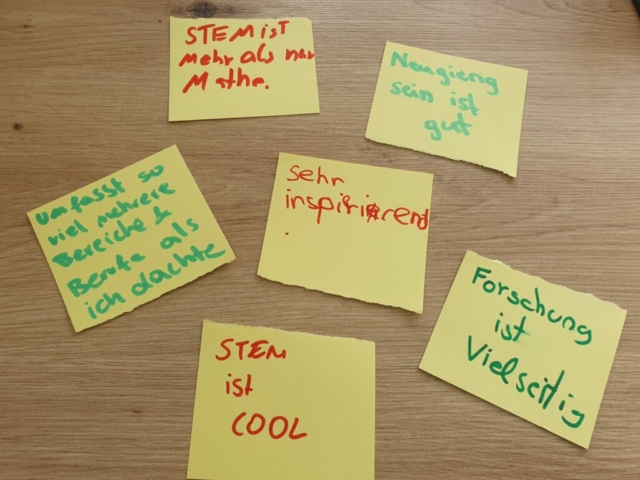 STEM ist
Mehr als nur
Mathe.
Neugierig
sein ist
gut
umfasst so
viel mehrere
Bereiche &
Berufe als
ich dachte
sehr
inspirierend
.
Forschung
ist
Vielseitig
STEM
ist
COOL